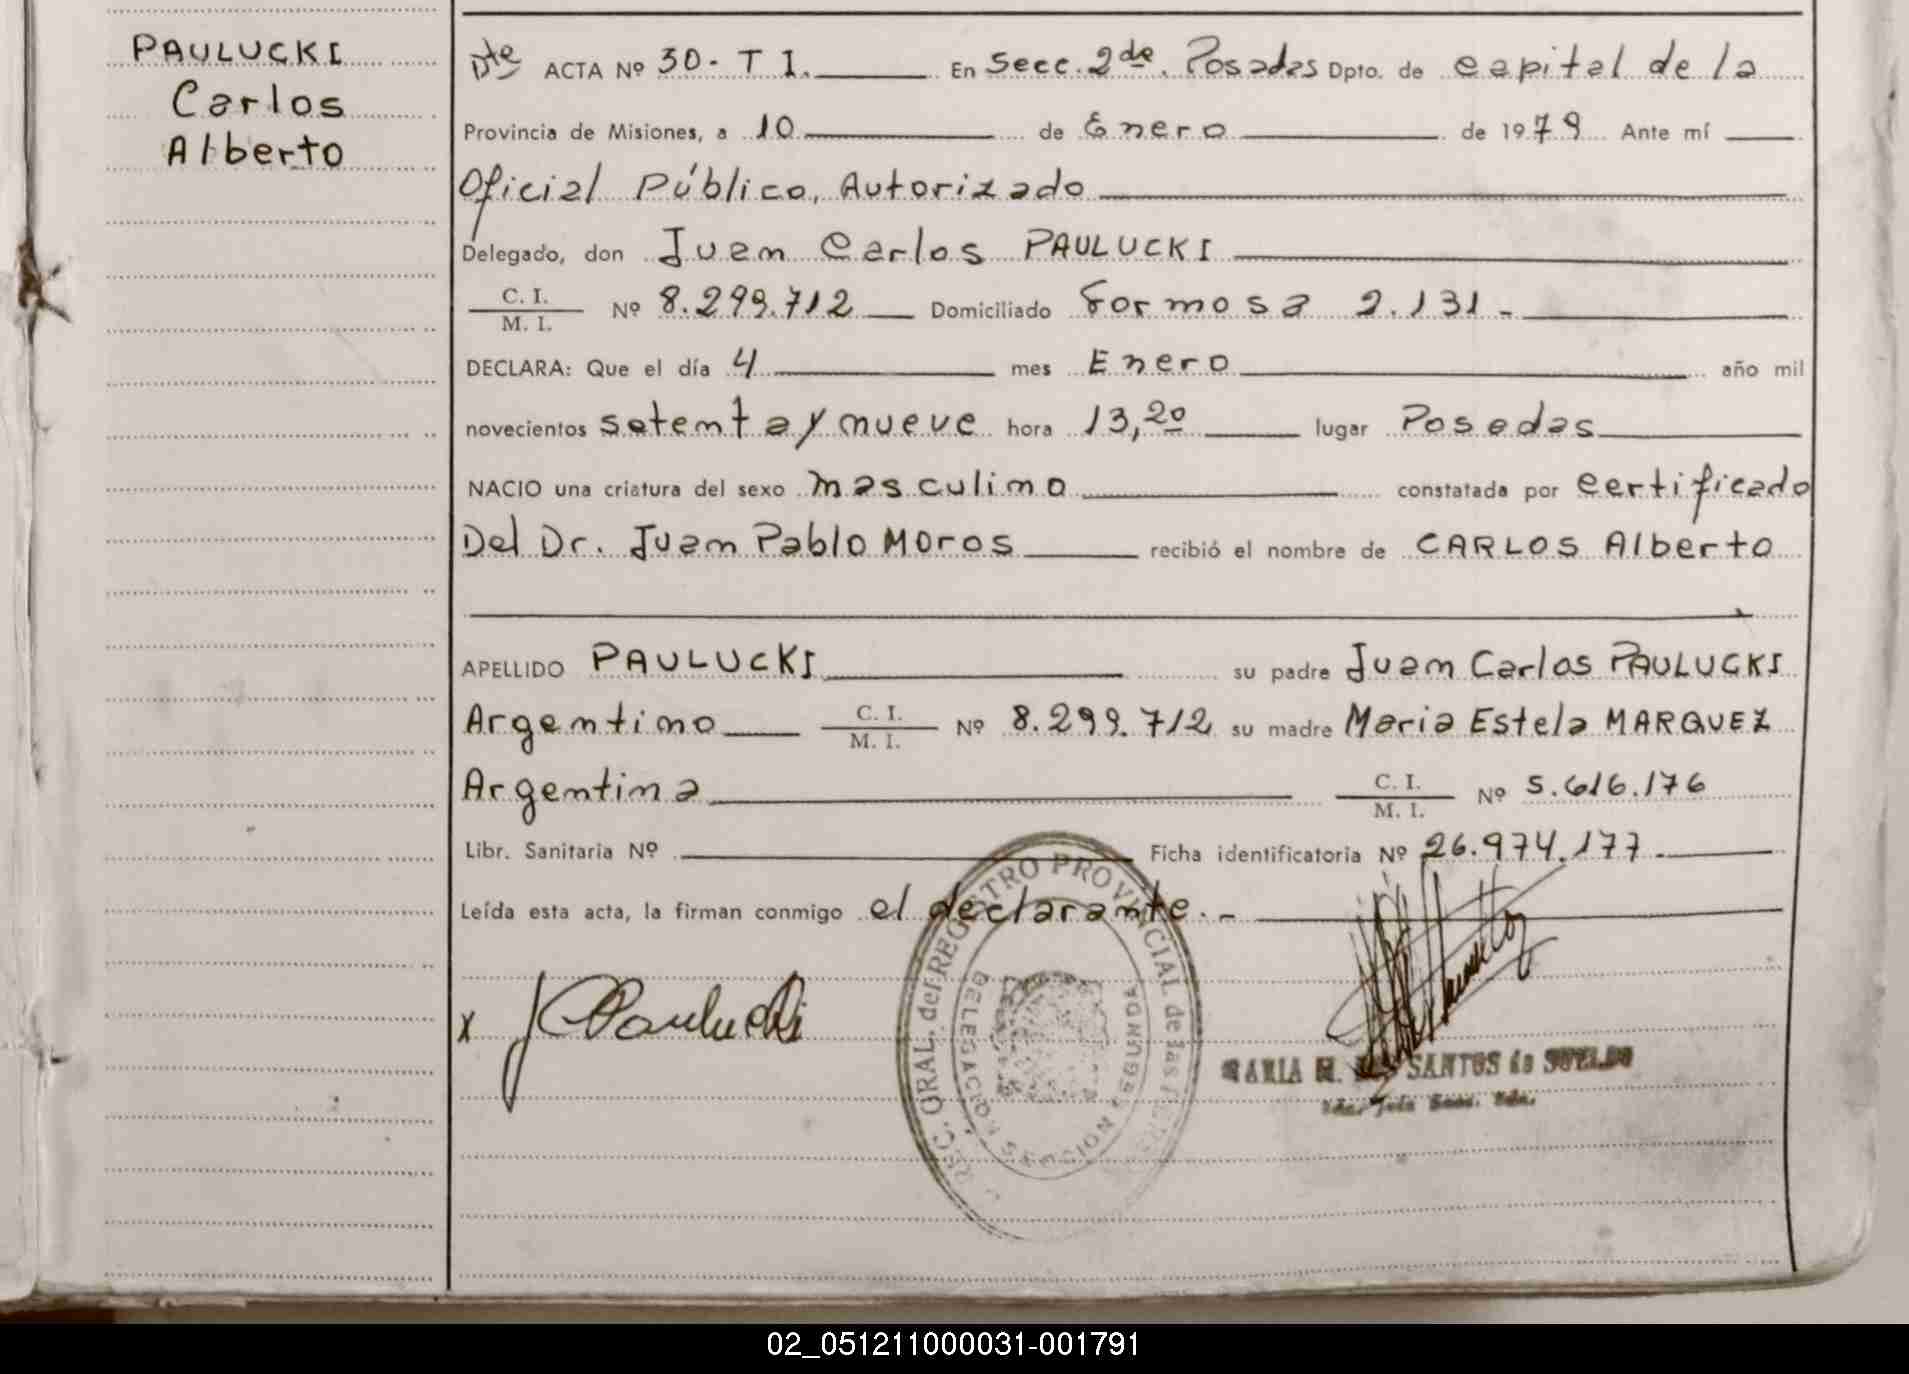 PAULUCKI
Carlos
Alberto
Dte ACTA Nº 30- T I. En Secc. 2da. Posadas Dpto. de capital de la
Provincia de Misiones, a 10 de Enero de 1979 Ante mí
Oficial Público, Autorizado
Delegado, don Juan Carlos PAULUCKI
C. I.
M. I. Nº 8.299.712 Domiciliado Formosa 2.131-
DECLARA: Que el día 4 mes Enero año mil
novecientos setenta y nueve hora 13,20 lugar Posadas
NACIO una criatura del sexo masculino constatada por certificado
Del Dr. Juan Pablo MOROS recibió el nombre de CARLOS Alberto
APELLIDO PAULUCKI su padre Juan Carlos PAULUCKI
Argentino C. I.
M. I. Nº 8.299.712 su madre Maria Estela MARQUEZ
Argentina C. I.
M. I. Nº 5.616.176
Libr. Sanitaria Nº Ficha identificatoria Nº 26.974.177.
Leída esta acta, la firman conmigo el declarante.-
x JCPaulucki
REC. GRAL. del REGISTRO PROVINCIAL de las
DELEGACION SECCION SEGUNDA
MARIA M. SANTOS de SUELDO
02_051211000031-001791